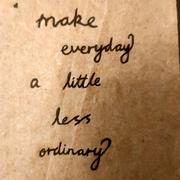 make
everyday
a little
less
ordinary